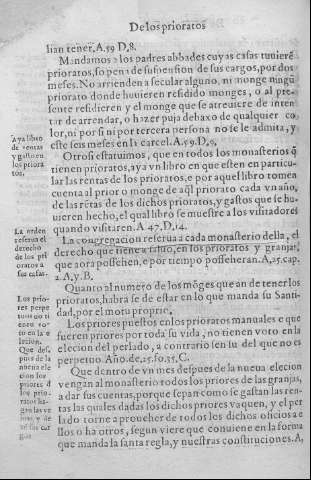 De los prioratos
lian tener, A.59 D,8.
Mandamos a los padres abbades cuyas casas tuuierē
prioratos, so pena de suspension de sus cargos, por dos
meses. No arrienden a secular alguno, ni monge ningū
priorato donde huuieren residido monges, o al pre-
sente residieren y el monge que se atreuiere de inten
tar de arrendar, o hazer puja debaxo de qualquier co
lor, ni por si ni por tercera persona no se le admita, y
este seis meses en la carcel. A.59. D,9,
Otrosi estatuimos, que en todos los monasterios q̄
tienen prioratos, aya vn libro en que esten en particu-
lar las rentas de los prioratos, e por aquel libro tomen
cuenta al prior o monge de aq̄l priorato cada vn año,
de las rētas de los dichos prioratos, y gastos que se hu-
uieren hecho, el qual libro se muestre a los visitadores
quando visitaren. A 47, D,14.
La congregacion reserua a cada monasterio della, el
derecho que tiene a su uso, en los prioratos y granjas,
que aora possehen, e por tiempo possehera.A,25.cap,
2.A,y.B.
Quanto al numero de los mōges que an de tener los
prioratos, habra se de estar en lo que manda su Santi-
dad, por el motu proprio.
Los priores puestos en los prioratos manuales e que
fueren priores por toda su vida, no tienen voto en la
elecion del perlado, a contrario sensu del que no es
perpetuo. Año. de, 25. fo. 35, C.
Que dentro de vn mes despues de la nueua elecion
vengan al monasterio todos los priores de las granjas,
a dar sus cuentas, porque sepan como se gastan las ren-
tas las quales dadas los dichos priores vaquen, y el per
lado torne a proueher de todos los dichos oficios a e
llos o ha otros, segun viere que conuiene en la forma
que manda la santa regla, y nuestras constituciones. A,
Aya libro
de rentas
y gasto en
los priora
tos,
La orden
reserua el
derecho
de los pri
oratos a
sus casas.
Los prio-
res perpe
tuos no ti
enen vo-
to en la e
lecion.
Que des-
pues de la
nueua ele
cion los
priores d
los prio-
ratos ha-
gan las ve